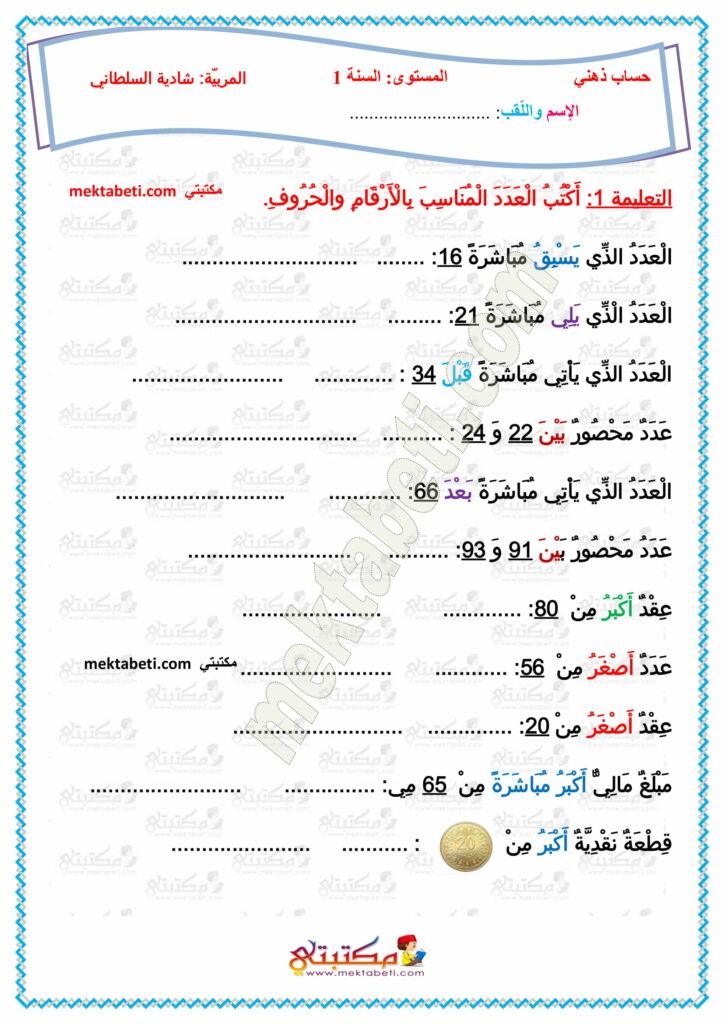 حساب ذهني المستوى: السنة 1 المربيّة: شادية السلطاني
الإسم واللّقب: ..............................
التعليمة 1: أَكْتُبُ الْعَدَدَ الْمُنَاسِبَ بِالْأَرْقَامِ والْحُرُوفِ. مكتبتي mektabeti.com
الْعَدَدُ الذِّي يَسْبِقُ مُبَاشَرَةً 16: ........ .............................
الْعَدَدُ الْذِّي يَلِي مُبَاشَرَةً 21: ......... ..............................
الْعَدَدُ الذِّي يَأْتِي مُبَاشَرَةً قَبْلَ 34 : ............. .........................
عَدَدٌ مَحْصُورٌ بَيْنَ 22 وَ 24 : .......... ...............................
الْعَدَدُ الذِّي يَأْتِي مُبَاشَرَةً بَعْدَ 66: ............ ............................
عَدَدُ مَحْصُورٌ بَيْنَ 91 وَ 93: .......... ...........................
عِقْدٌ أَكْبَرُ مِنْ 80: ............. .......................
عَدَدٌ أَصْغَرُ مِنْ 56: ............ ......................... مكتبتي mektabeti.com
عِقْدٌ أَصْغَرُ مِنْ 20: .............. .................................
مَبْلَغٌ مَالِيٌّ أَكْبَرُ مُبَاشَرَةً مِنْ 65 مِي: ............... .........................
قِطْعَةٌ نَقْدِيَّةٌ أَكْبَرُ مِنْ 20 : ........... .......................
mektabeti.com
مكتبتي
www.mektabeti.com